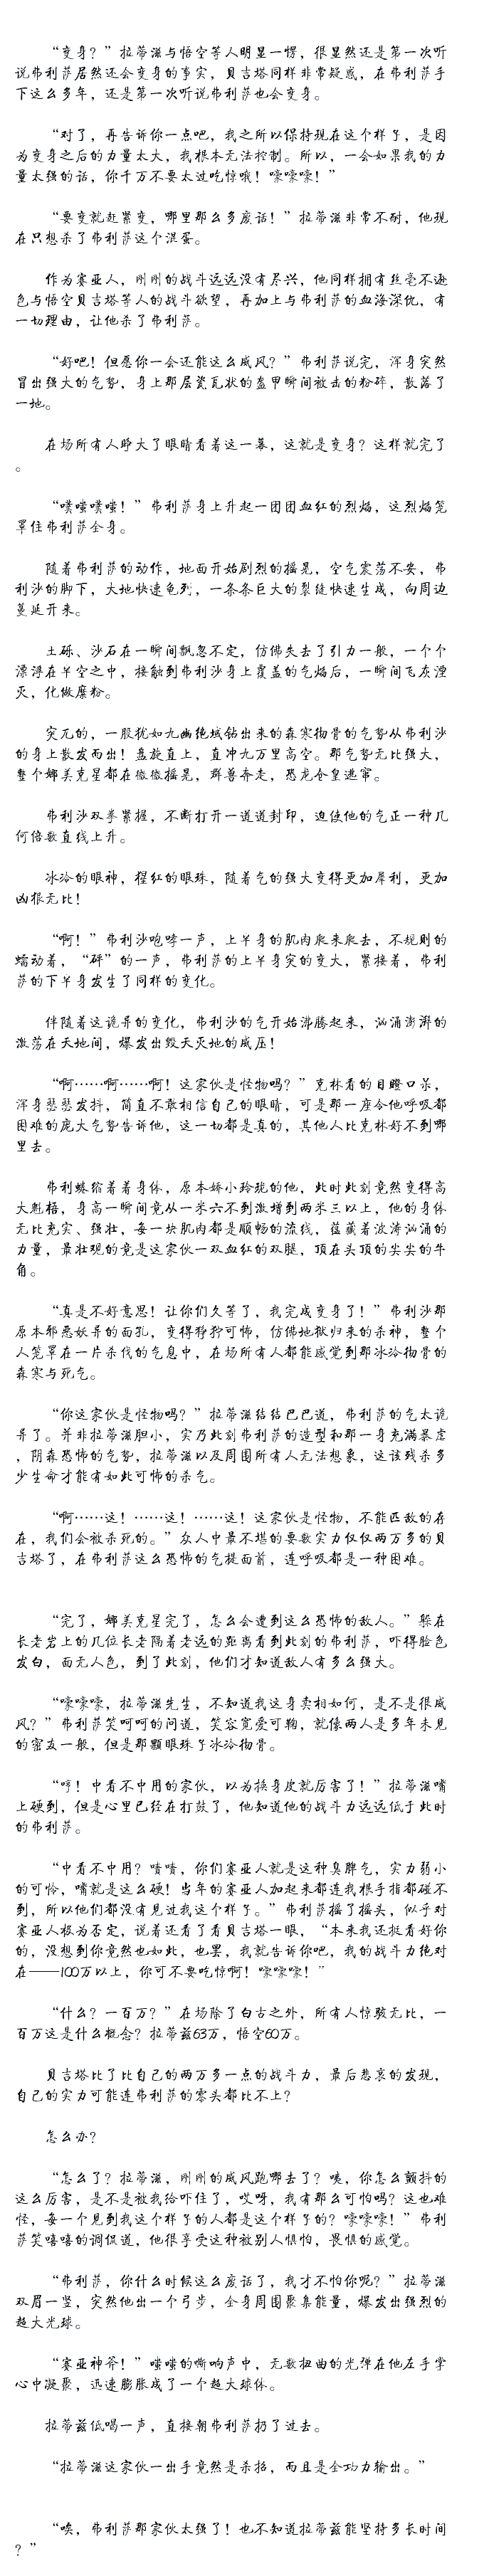 “变身？”拉蒂滋与悟空等人明显一愣，很显然还是第一次听
说弗利萨居然还会变身的事实，贝吉塔同样非常疑惑，在弗利萨手
下这么多年，还是第一次听说弗利萨也会变身。
“对了，再告诉你一点吧，我之所以保持现在这个样子，是因
为变身之后的力量太大，我根本无法控制。所以，一会如果我的力
量太强的话，你千万不要太过吃惊哦！嚎嚎嚎！”
“要变就赶紧变，哪里那么多废话！”拉蒂滋非常不耐，他现
在只想杀了弗利萨这个混蛋。
作为赛亚人，刚刚的战斗远远没有尽兴，他同样拥有丝毫不逊
色与悟空贝吉塔等人的战斗欲望，再加上与弗利萨的血海深仇，有
一切理由，让他杀了弗利萨。
“好吧！但愿你一会还能这么威风？”弗利萨说完，浑身突然
冒出强大的气势，身上那层瓷瓦状的盔甲瞬间被击的粉碎，散落了
一地。
在场所有人睁大了眼睛看着这一幕，这就是变身？这样就完了
。
“噗嗤噗嗤！”弗利萨身上升起一团团血红的烈焰，这烈焰笼
罩住弗利萨全身。
随着弗利萨的动作，地面开始剧烈的摇晃，空气震荡不安，弗
利沙的脚下，大地快速龟列，一条条巨大的裂缝快速生成，向周边
蔓延开来。
土砾、沙石在一瞬间飘忽不定，仿佛失去了引力一般，一个个
漂浮在半空之中，接触到弗利沙身上覆盖的气焰后，一瞬间飞灰湮
灭，化做糜粉。
突兀的，一股犹如九幽绝域钻出来的森寒彻骨的气势从弗利沙
的身上散发而出！盘旋直上，直冲九万里高空。那气势无比强大，
整个娜美克星都在微微摇晃，群兽奔走，恐龙仓皇逃窜。
弗利沙双拳紧握，不断打开一道道封印，迫使他的气正一种几
何倍数直线上升。
冰冷的眼神，猩红的眼珠，随着气的强大变得更加犀利，更加
凶狠无比！
“啊！”弗利沙咆哮一声，上半身的肌肉爬来爬去，不规则的
蠕动着，“砰”的一声，弗利萨的上半身突的变大，紧接着，弗利
萨的下半身发生了同样的变化。
伴随着这诡异的变化，弗利沙的气开始沸腾起来，汹涌澎湃的
激荡在天地间，爆发出毁天灭地的威压！
“啊……啊……啊！这家伙是怪物吗？”克林看的目瞪口呆，
浑身瑟瑟发抖，简直不敢相信自己的眼睛，可是那一座令他呼吸都
困难的庞大气势告诉他，这一切都是真的，其他人比克林好不到哪
里去。
弗利蜷缩着着身体，原本娇小玲珑的他，此时此刻竟然变得高
大魁梧，身高一瞬间竟从一米六不到激增到两米三以上，他的身体
无比充实、强壮，每一块肌肉都是顺畅的流线，蕴藏着波涛汹涌的
力量，最壮观的竟是这家伙一双血红的双腿，顶在头顶的尖尖的牛
角。
“真是不好意思！让你们久等了，我完成变身了！”弗利沙那
原本邪恶妖异的面孔，变得狰狞可怖，仿佛地狱归来的杀神，整个
人笼罩在一片杀伐的气息中，在场所有人都能感觉到那冰冷彻骨的
森寒与死气。
“你这家伙是怪物吗？”拉蒂滋结结巴巴道，弗利萨的气太诡
异了。并非拉蒂滋胆小，实乃此刻弗利萨的造型和那一身充满暴虐
，阴森恐怖的气势，拉蒂滋以及周围所有人无法想象，这该残杀多
少生命才能有如此可怖的杀气。
“啊……这！……这！……这！这家伙是怪物，不能匹敌的存
在，我们会被杀死的。”众人中最不堪的要数实力仅仅两万多的贝
吉塔了，在弗利萨这么恐怖的气提面前，连呼吸都是一种困难。
“完了，娜美克星完了，怎么会遭到这么恐怖的敌人。”躲在
长老岩上的几位长老隔着老远的距离看到此刻的弗利萨，吓得脸色
发白，面无人色，到了此刻，他们才知道敌人有多么强大。
“嚎嚎嚎，拉蒂滋先生，不知道我这身卖相如何，是不是很威
风？”弗利萨笑呵呵的问道，笑容宽爱可鞠，就像两人是多年未见
的密友一般，但是那颗眼珠子冰冷彻骨。
“哼！中看不中用的家伙，以为换身皮就厉害了！”拉蒂滋嘴
上硬到，但是心里已经在打鼓了，他知道他的战斗力远远低于此时
的弗利萨。
“中看不中用？啧啧，你们赛亚人就是这种臭脾气，实力弱小
的可怜，嘴就是这么硬！当年的赛亚人加起来都连我根手指都碰不
到，所以他们都没有见过我这个样子。”弗利萨摇了摇头，似乎对
赛亚人极为否定，说着还看了看贝吉塔一眼，“本来我还挺看好你
的，没想到你竟然也如此，也罢，我就告诉你吧，我的战斗力绝对
在——100万以上，你可不要吃惊啊！嚎嚎嚎！”
“什么？一百万？”在场除了白古之外，所有人惊骇无比，一
百万这是什么概念？拉蒂兹63万，悟空60万。
贝吉塔比了比自己的两万多一点的战斗力，最后悲哀的发现，
自己的实力可能连弗利萨的零头都比不上？
怎么办？
“怎么了？拉蒂滋，刚刚的威风跑哪去了？咦，你怎么颤抖的
这么厉害，是不是被我给吓住了，哎呀，我有那么可怕吗？这也难
怪，每一个见到我这个样子的人都是这个样子的？嚎嚎嚎！”弗利
萨笑嘻嘻的调侃道，他很享受这种被别人惧怕，畏惧的感觉。
“弗利萨，你什么时候这么废话了，我才不怕你呢？”拉蒂滋
双眉一竖，突然他出一个弓步，全身周围聚集能量，爆发出强烈的
超大光球。
“赛亚神斧！”嗤嗤的嘶响声中，无数扭曲的光弹在他左手掌
心中凝聚，迅速膨胀成了一个超大球体。
拉蒂兹低喝一声，直接朝弗利萨扔了过去。
“拉蒂滋这家伙一出手竟然是杀招，而且是全功力输出。”
“唉，弗利萨那家伙太强了！也不知道拉蒂兹能坚持多长时间
？”